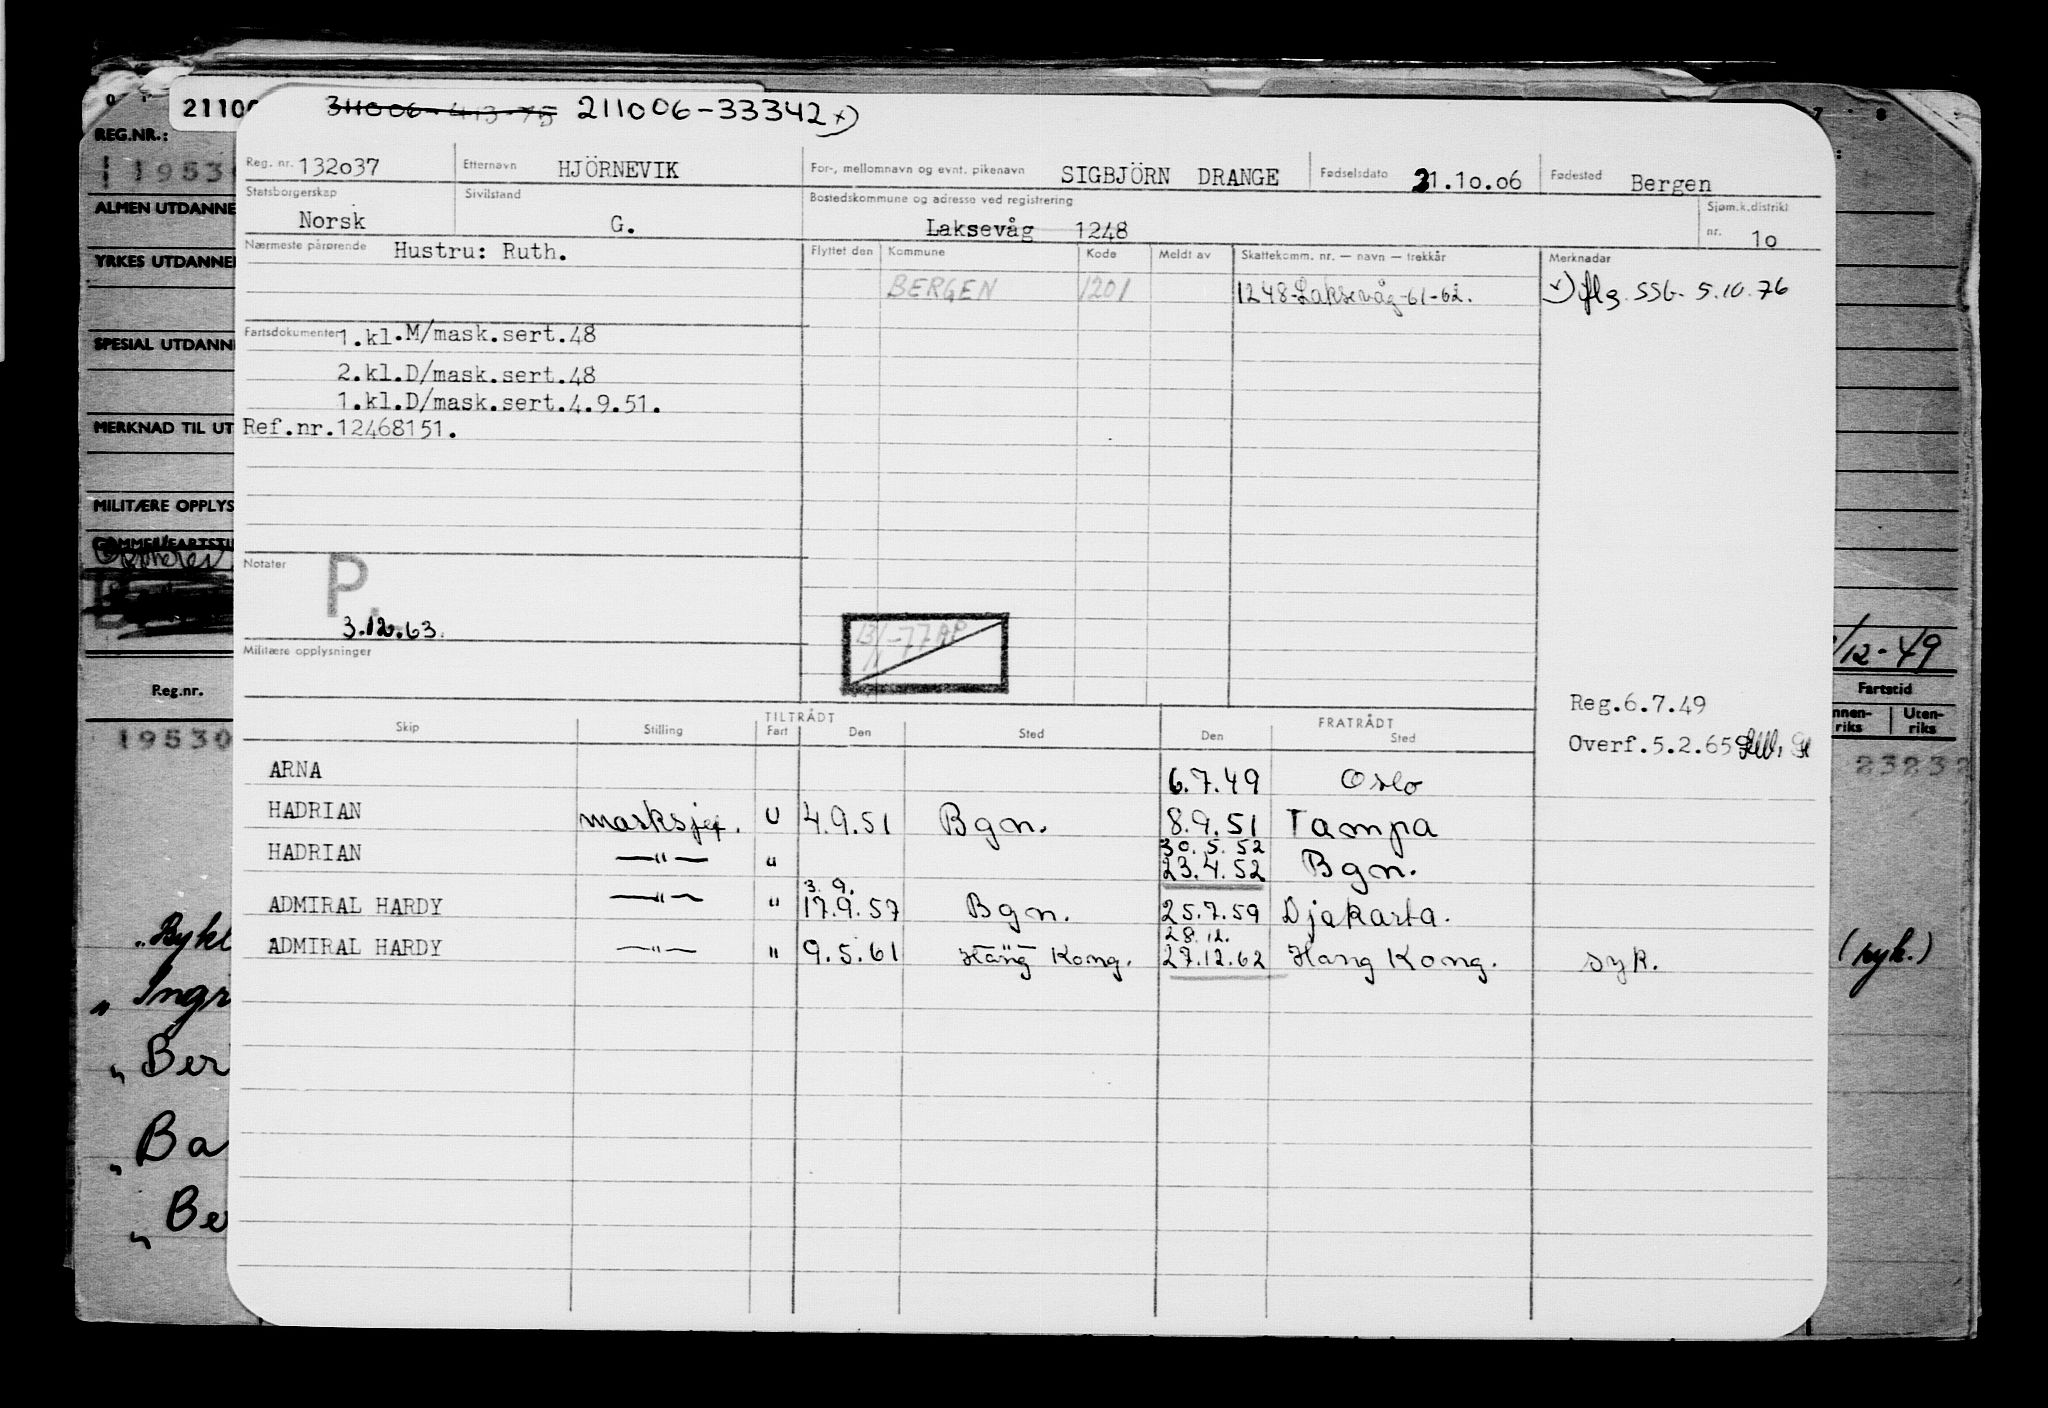 21100
311006-413-75 211006-33342 x)
REG.NR.:
1953
Reg. nr. 132o37 Etternavn HJÖRNEVIK For-, mellomnavn og evnt. pikenavn SIGBJÖRN DRANGE Fødselsdato 21.1o.o6 Fødested Bergen
Statsborgerskap Norsk Sivilstand G. Bostedskommune og adresse ved registrering Laksevåg 1248 Sjøm.k.distrikt nr. 1o
ALMEN UTDANNE
Nærmeste pårørende Hustru: Ruth. Flyttet den Kommune Kode Meldt av Skattekomm. nr. — navn — trekkår Merknader
YRKES UTDANNE
BERGEN 1201 1248-Laksevåg-61-62. x) iflg. SSB. 5.10.76
Fartsdokumenter 1.kl.M/mask.sert.48
SPESIAL UTDANN
2.kl.D/mask.sert.48
1.kl.D/mask.sert.4.9.51.
MERKNAD TIL UT
Ref.nr.12468151.
MILITÆRE OPPLYS
Notater P.
3.12.63.
Militære opplysninger
-77 AP
/12-49
Reg.nr.
Fartstid
nnen-riks Uten-riks
Reg.6.7.49
Overf.5.2.65
Skip Stilling TILTRÅDT Fart Den Sted FRATRÅDT Den Sted
19530
23232
ARNA 6.7.49 Oslo
HADRIAN masksjef. U 4.9.51 Bgn. 8.9.51 Tampa
HADRIAN —"— " 30.5.52 23.4.52 Bgn.
ADMIRAL HARDY —"— " 3.9. 17.9.57 Bgn. 25.7.59 Djakarta.
ADMIRAL HARDY —"— " 9.5.61 Hang Kong. 28.12. 27.12.62 Hang Kong. syk.
(syk.)
" Ingr
" Ber
" Ba
" Be